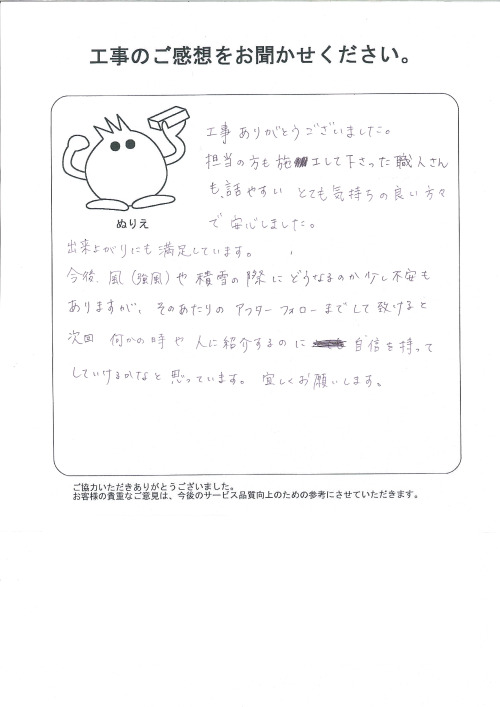 工事のご感想をお聞かせください。
工事ありがとうございました。
担当の方も施工して下さった職人さん
も、話やすい とても気持ちの良い方々
で安心しました。
ぬりえ
出来上がりにも満足しています。
今後、風(強風)や積雪の際にどうなるのか少し不安も
ありますが、そのあたりのアフターフォローまでして致けると
次回 何かの時や人に紹介するのに 自信を持って
していけるかなと思っています。宜しくお願いします。
ご協力いただきありがとうございました。
お客様の貴重なご意見は、今後のサービス品質向上のための参考にさせていただきます。